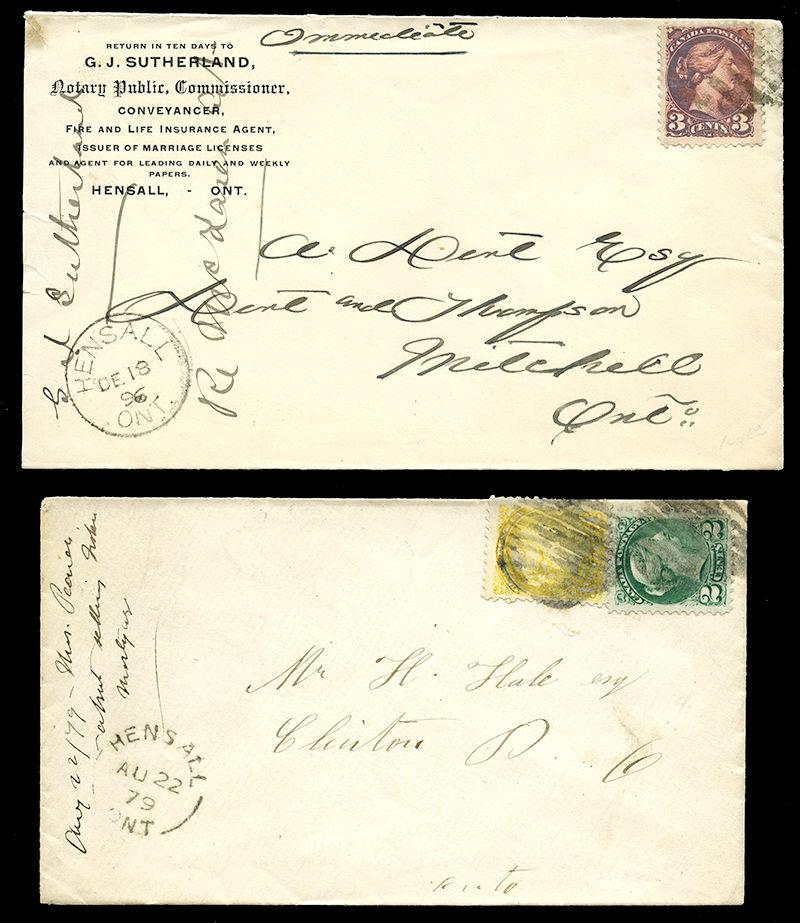 RETURN IN TEN DAYS TO
G. J. SUTHERLAND,
Notary Public, Commissioner,
CONVEYANCER,
FIRE AND LIFE INSURANCE AGENT,
ISSUER OF MARRIAGE LICENSES
AND AGENT FOR LEADING DAILY AND WEEKLY
PAPERS.
HENSALL, - ONT.
Immediate
CANADA POSTAGE
3 CENTS 3
Sutherland
Re
A. Dent Esq
Dent and Thompson
Mitchell
Ont.
HENSALL
DE 18
96
ONT.
CANADA POSTAGE
2 CENTS 2
Aug 22/79 - Mrs.
about selling
Mr H. Hale esq
Clinton P. O
onto
HENSALL
AU 22
79
ONT